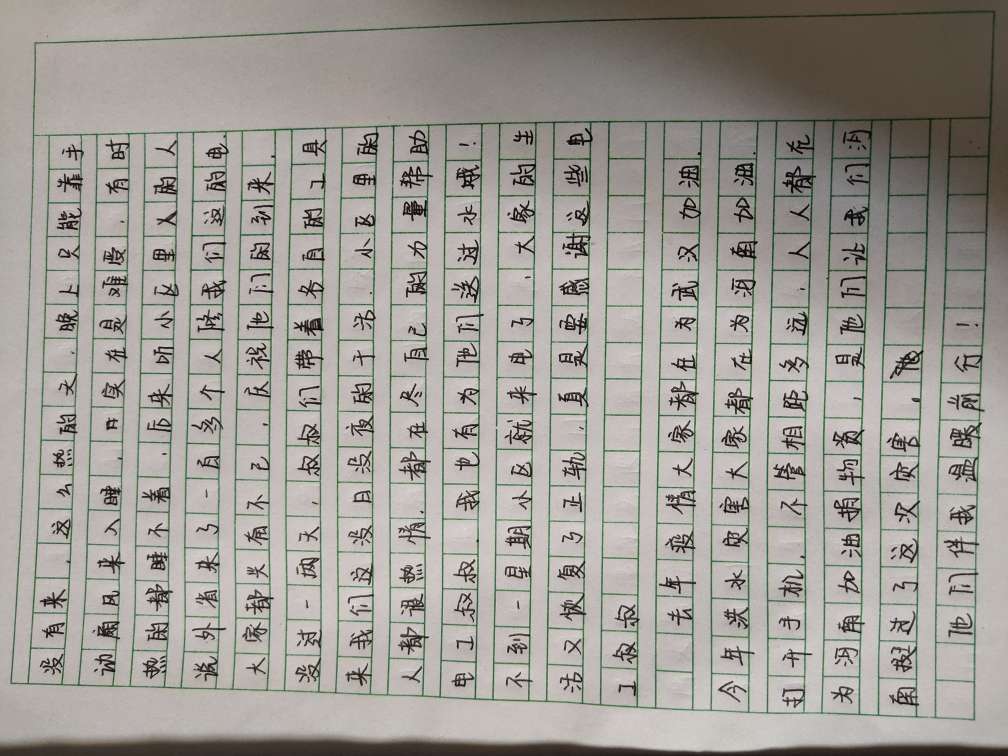 没有来，这么热的天，晚上只能靠手
动扇风来入睡，日实在是难受，有时
热的都睡不着，后来听小区里人的人
说外省来了一百多个人修我们这的电，
大家都兴奋不已，庆祝他们的到来，
没过一两天，叔叔们带着务自的工具
来我们这没日没夜的干活，小区里的
人都很热情，都在尽自己的力量帮助
电工叔叔，我也有为他们送过水哦！
不到一星期小区就来电了，大家的生
活又恢复了正轨，夏是要感谢这些电
工叔叔
去年疫情大家都在为武汉加油，
今年洪水灾害大家都在为河南加油，
打开手机，不管相距多远，人人都在
为河南加油捐物资，是他们让我们河
南挺过了这次灾害。
他们伴我温暖前行！